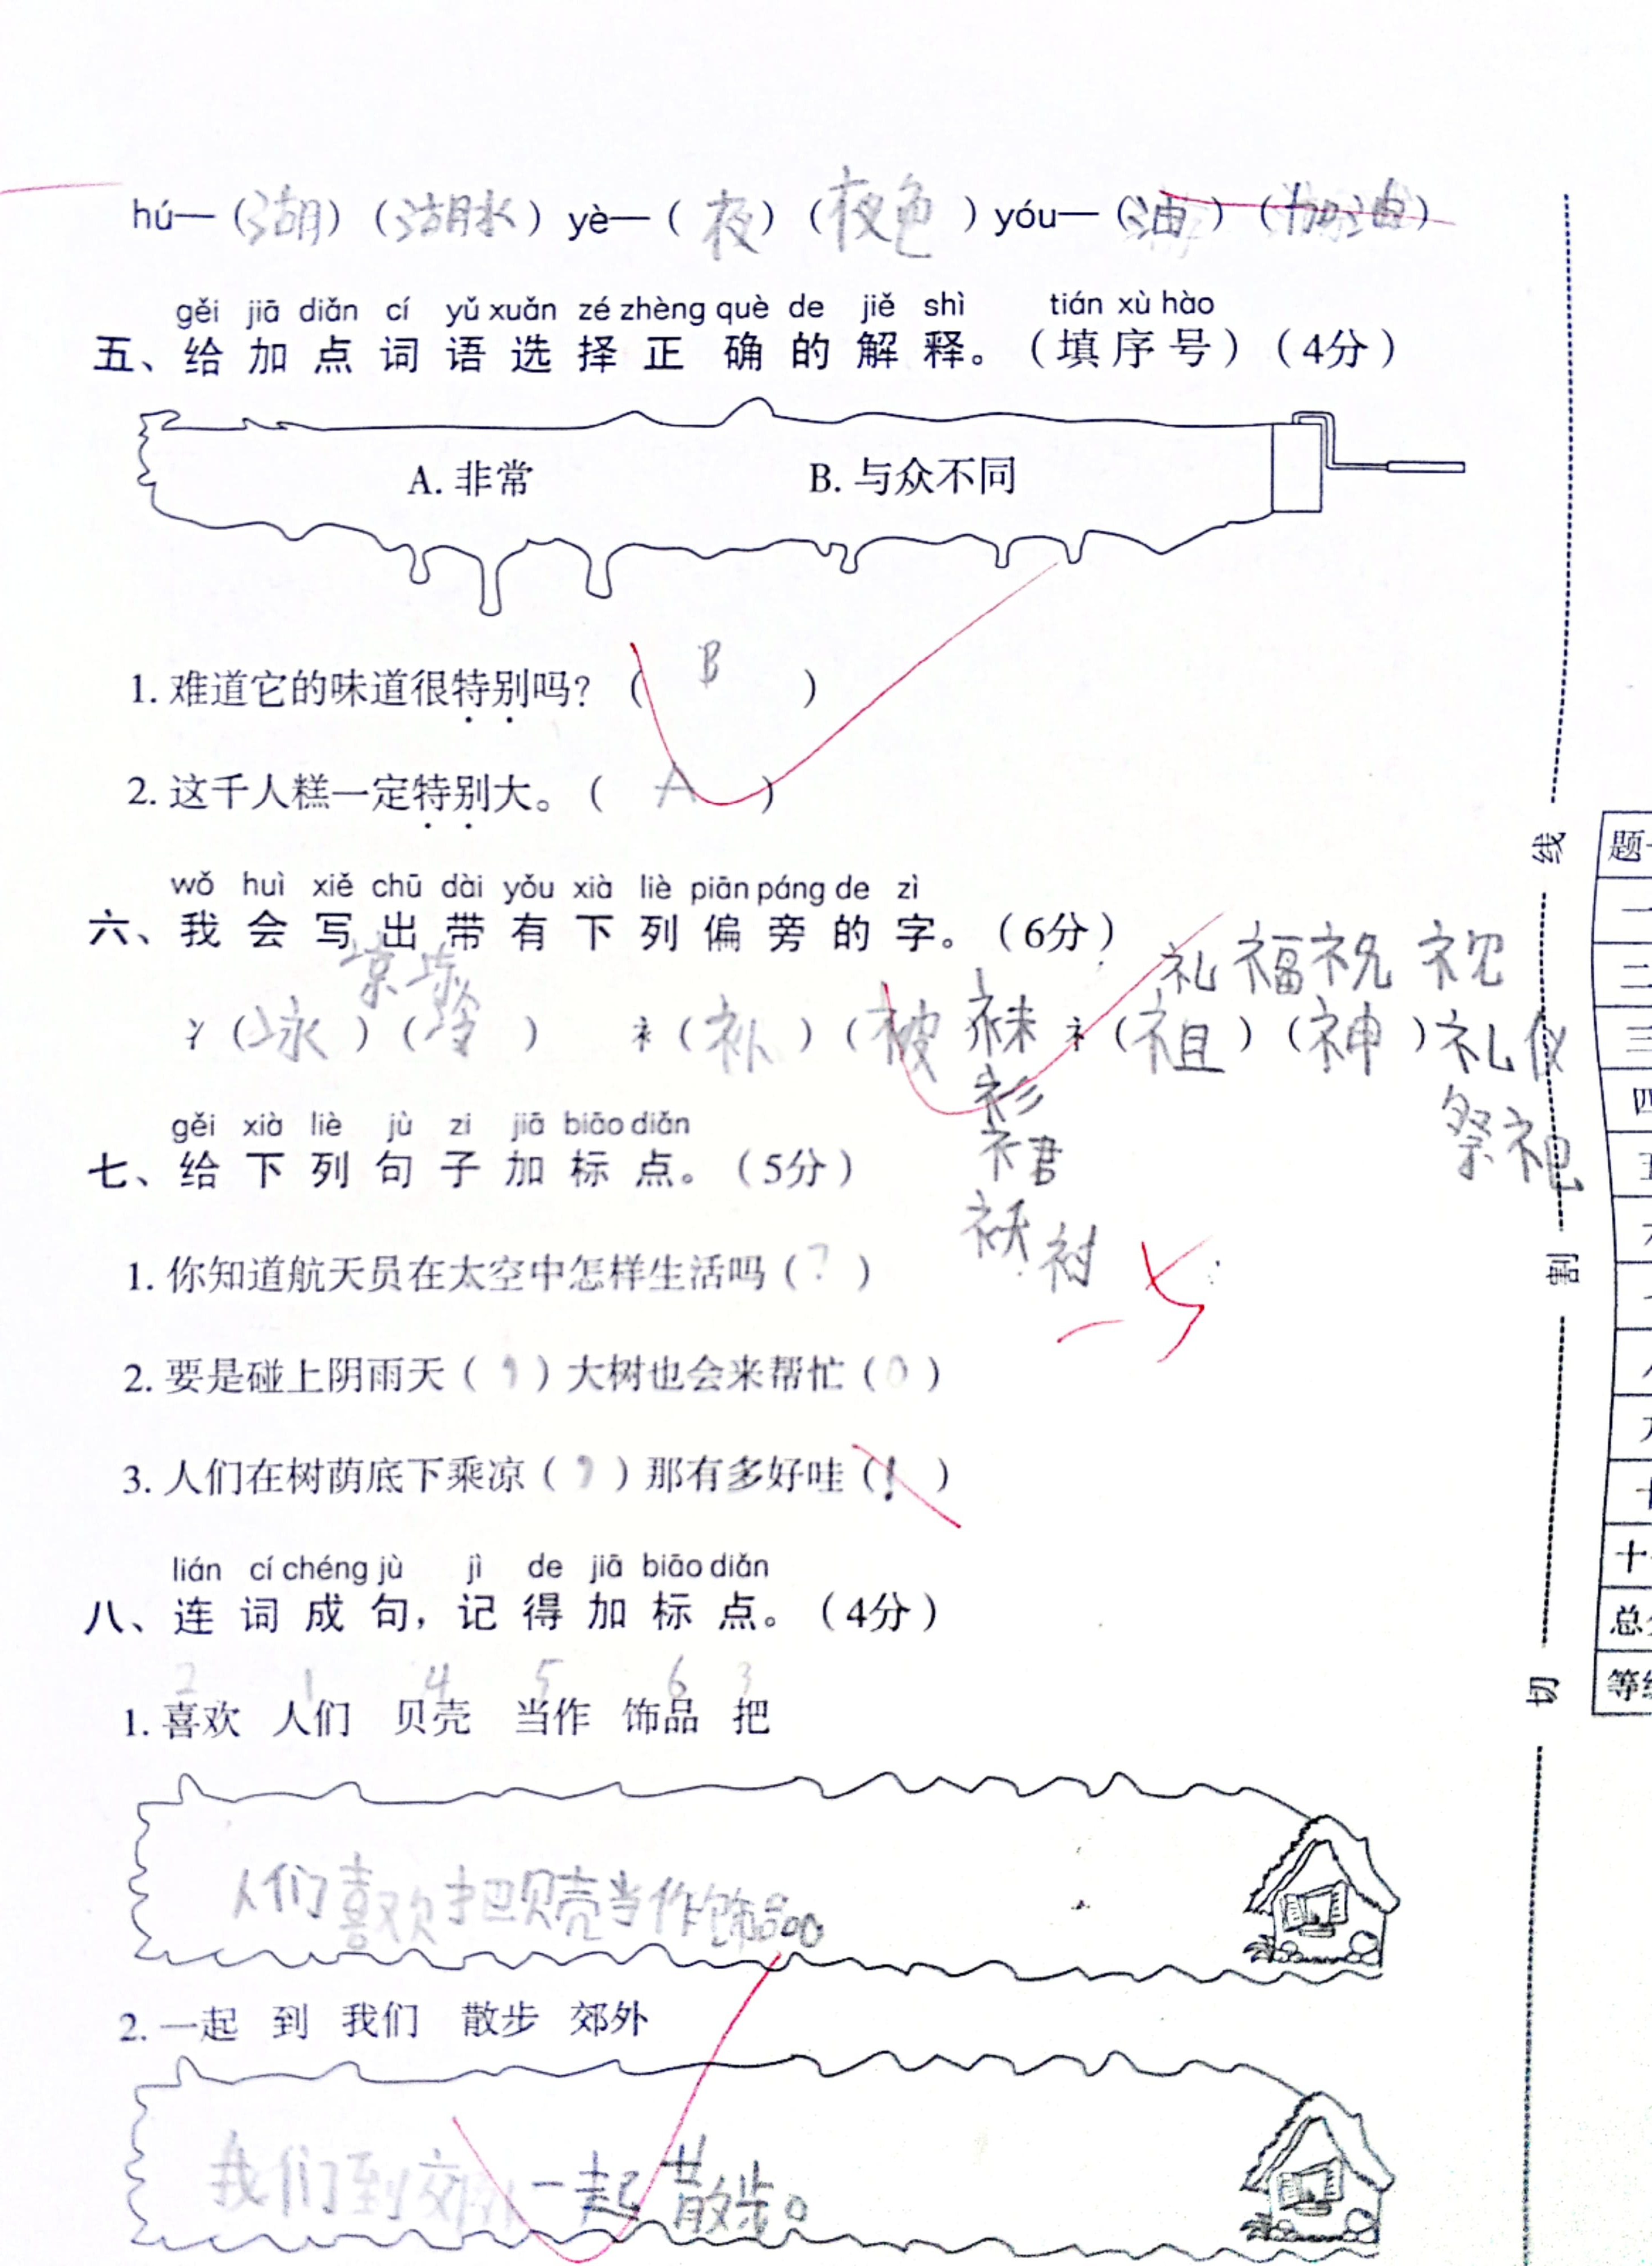 hú—(湖)(湖水) yè—(夜)(夜色) yóu—(油)(加油)
gěi jiā diǎn cí yǔ xuǎn zé zhèng què de jiě shì tián xù hào
五、给加点词语选择正确的解释。(填序号)(4分)
A. 非常 B. 与众不同
1. 难道它的味道很特别吗?(B)
2. 这千人糕一定特别大。(A)
wǒ huì xiě chū dài yǒu xià liè piān páng de zì
六、我会写出带有下列偏旁的字。(6分)
凉 礼 福 祝 祝
冫(冰)(冷) 衤(补)(被 袜 礻(祖)(神)礼仪
衫
祭祀
裙
gěi xià liè jù zi jiā biāo diǎn
七、给下列句子加标点。(5分)
袄 衬
1. 你知道航天员在太空中怎样生活吗(?)
2. 要是碰上阴雨天(,)大树也会来帮忙(。)
3. 人们在树荫底下乘凉(,)那有多好哇(!)
lián cí chéng jù jì de jiā biāo diǎn
八、连词成句,记得加标点。(4分)
2 1 4 5 6 3
1. 喜欢 人们 贝壳 当作 饰品 把
人们喜欢把贝壳当作饰品。
2. 一起 到 我们 散步 郊外
我们到郊外一起散步。
线
割
切
题
一
二
三
四
五
十
总
等